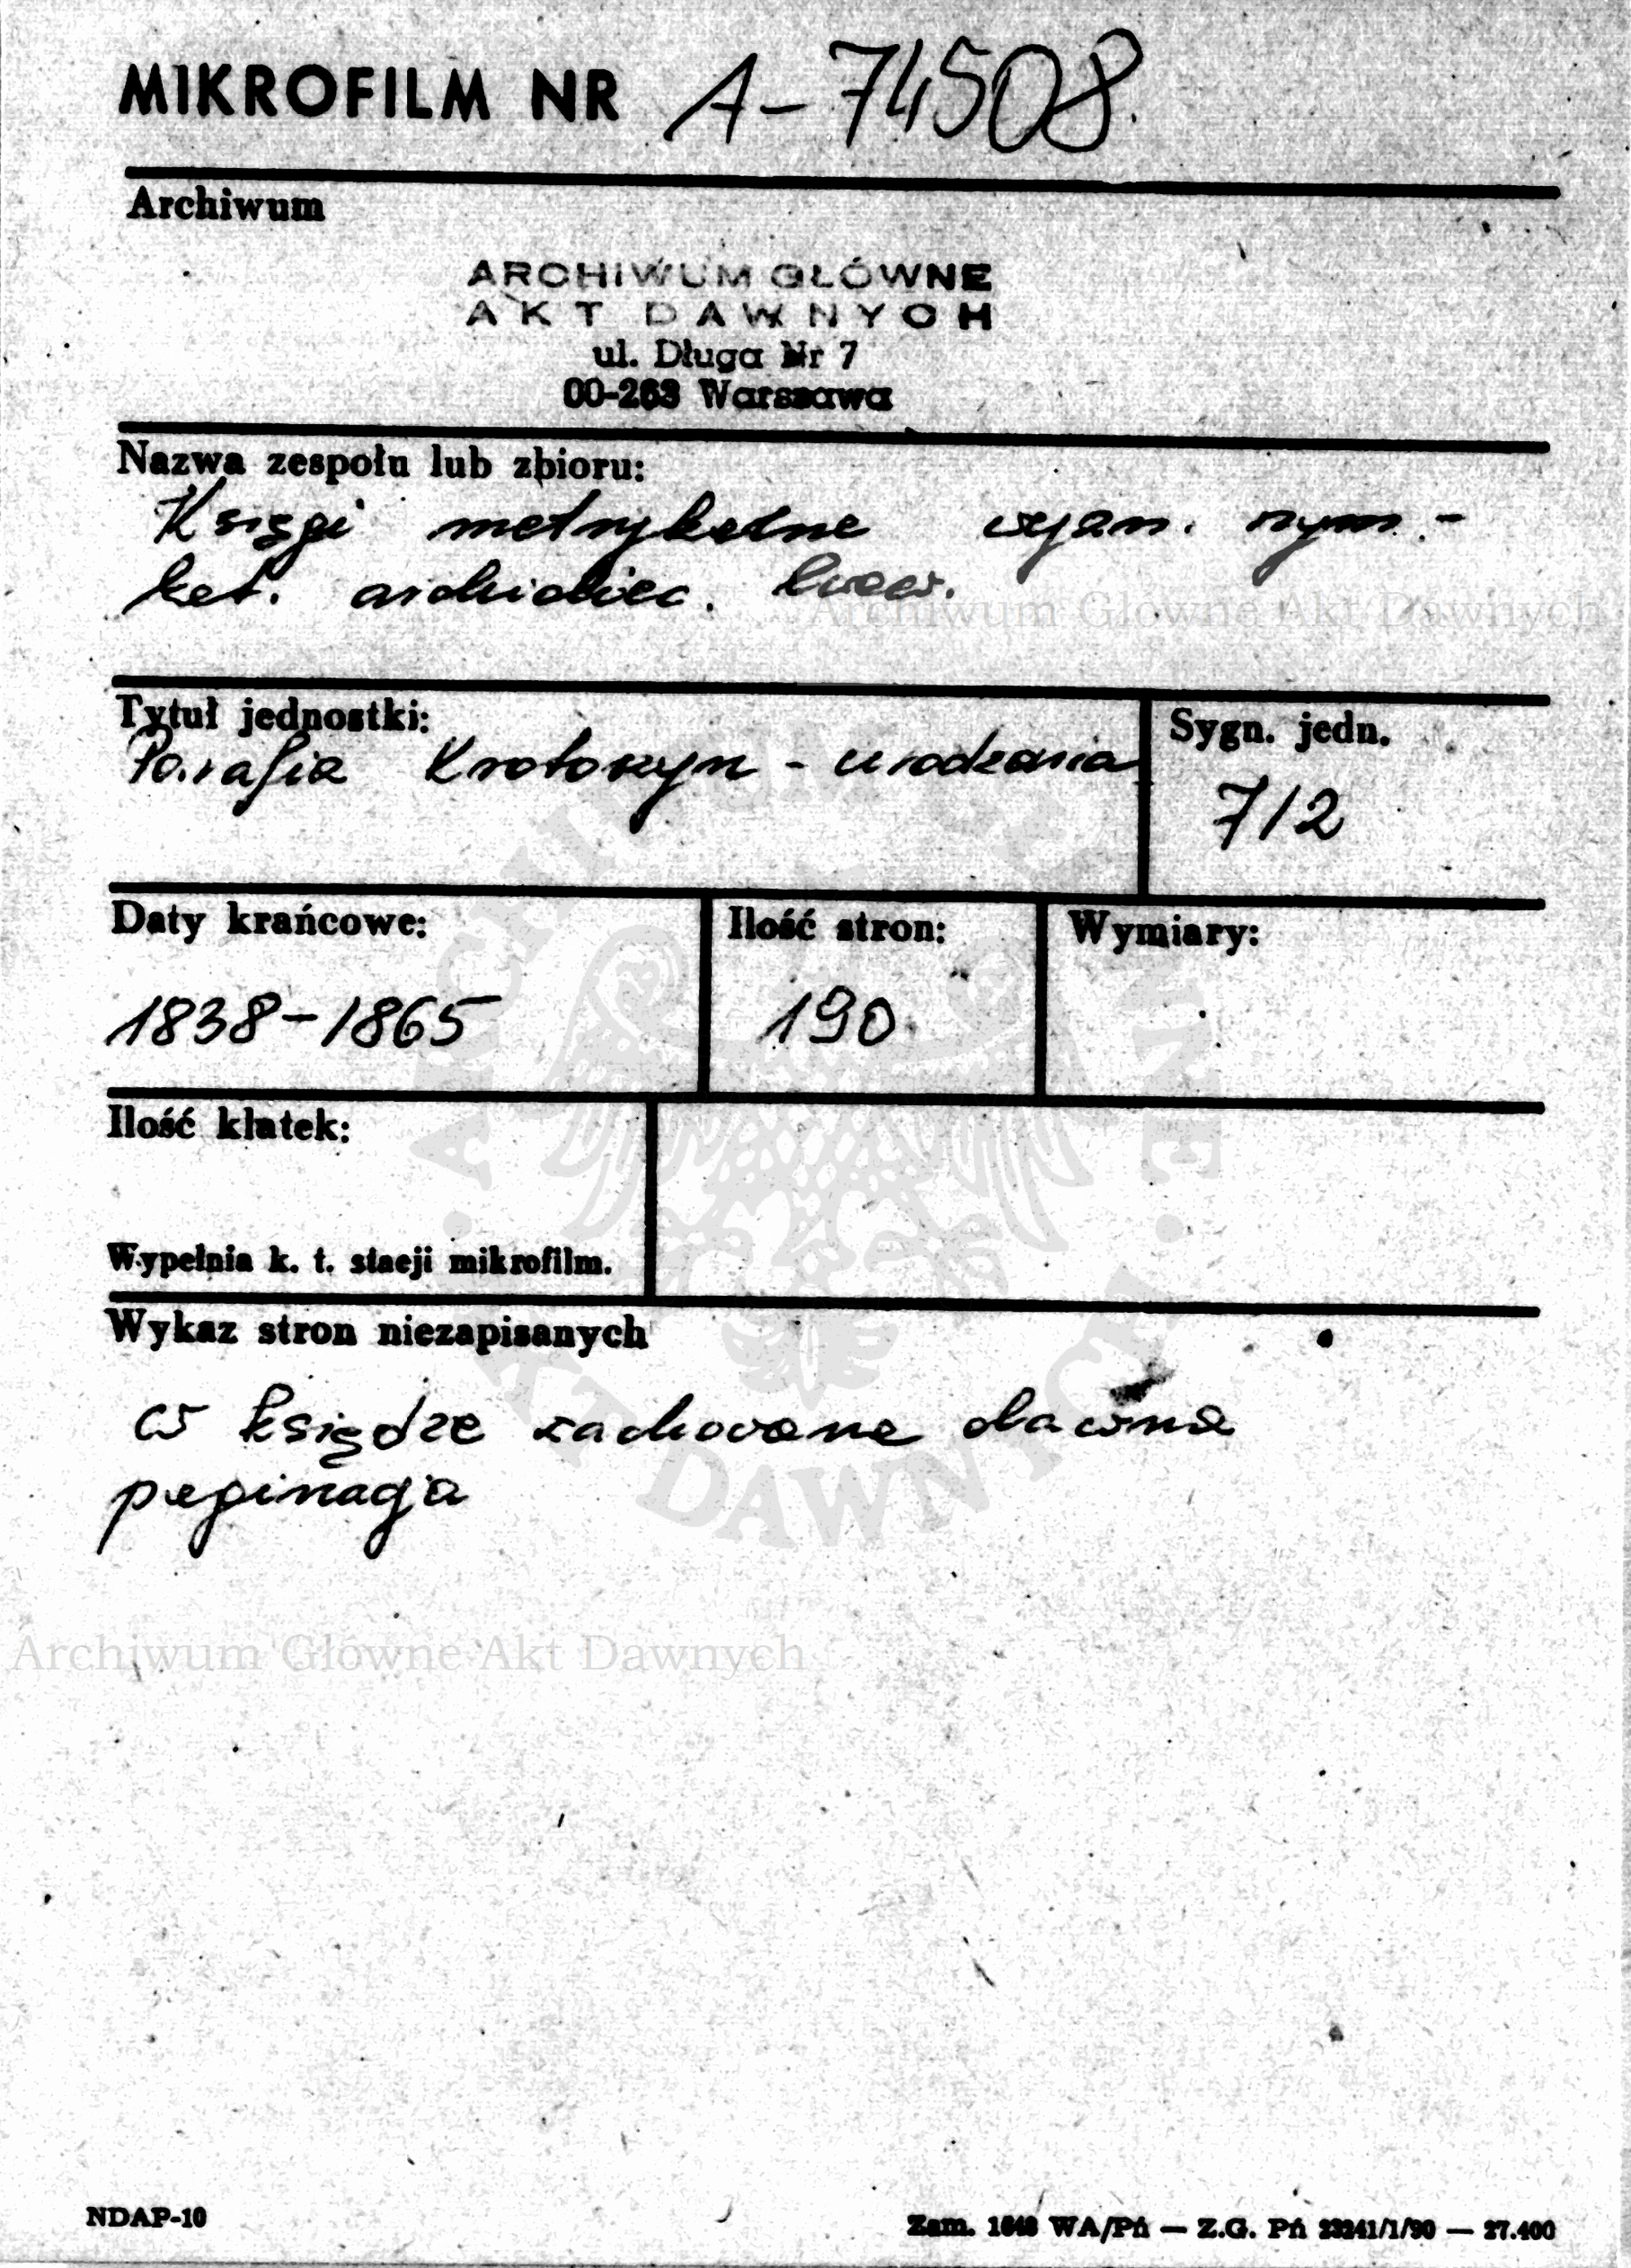 MIKROFILM NR A-74508.
Archiwum
ARCHIWUM GŁÓWNE
AKT DAWNYCH
ul. Długa Nr 7
00-263 Warszawa
Nazwa zespołu lub zbioru:
Księgi metrykalne wyzn. rzym.-
kat. archidiec. lwow.
Archiwum Główne Akt Dawnych
Tytuł jednostki:
Parafia Krotoszyn - urodzenia
Sygn. jedn.
712
Daty krańcowe:
1838-1865
Ilość stron:
190
Wymiary:
Ilość klatek:
Wypełnia k. t. stacji mikrofilm.
Wykaz stron niezapisanych
w księdze zachowano dawną
paginację
ARCHIWUM GŁÓWNE
AKT DAWNYCH
Archiwum Główne Akt Dawnych
NDAP-10
Zam. 1648 WA/Pń — Z.G. Pń 23241/1/90 — 27.400